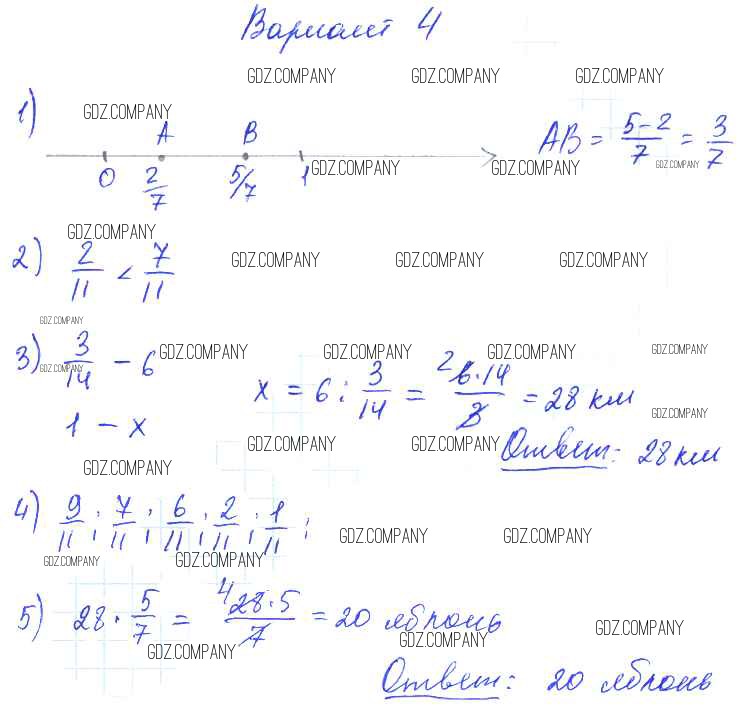 Вариант 4
GDZ.COMPANY GDZ.COMPANY GDZ.COMPANY
1) GDZ.COMPANY
A B AB = 5-2/7 = 3/7
0 2/7 5/7 1 GDZ.COMPANY GDZ.COMPANY GDZ.COMPANY
GDZ.COMPANY
2) 2/11 < 7/11 GDZ.COMPANY GDZ.COMPANY GDZ.COMPANY
GDZ.COMPANY
3) 3/14 - 6 GDZ.COMPANY GDZ.COMPANY GDZ.COMPANY GDZ.COMPANY
GDZ.COMPANY
x = 6 : 3/14 = 2 6·14/3 = 28 км
1 - x GDZ.COMPANY
Ответ: 28 км
GDZ.COMPANY GDZ.COMPANY GDZ.COMPANY
4) 9/11; 7/11; 6/11; 2/11; 1/11; GDZ.COMPANY GDZ.COMPANY
GDZ.COMPANY GDZ.COMPANY
5) 28 · 5/7 = 4 28·5/7 = 20 яблонь
GDZ.COMPANY GDZ.COMPANY GDZ.COMPANY
Ответ: 20 яблонь